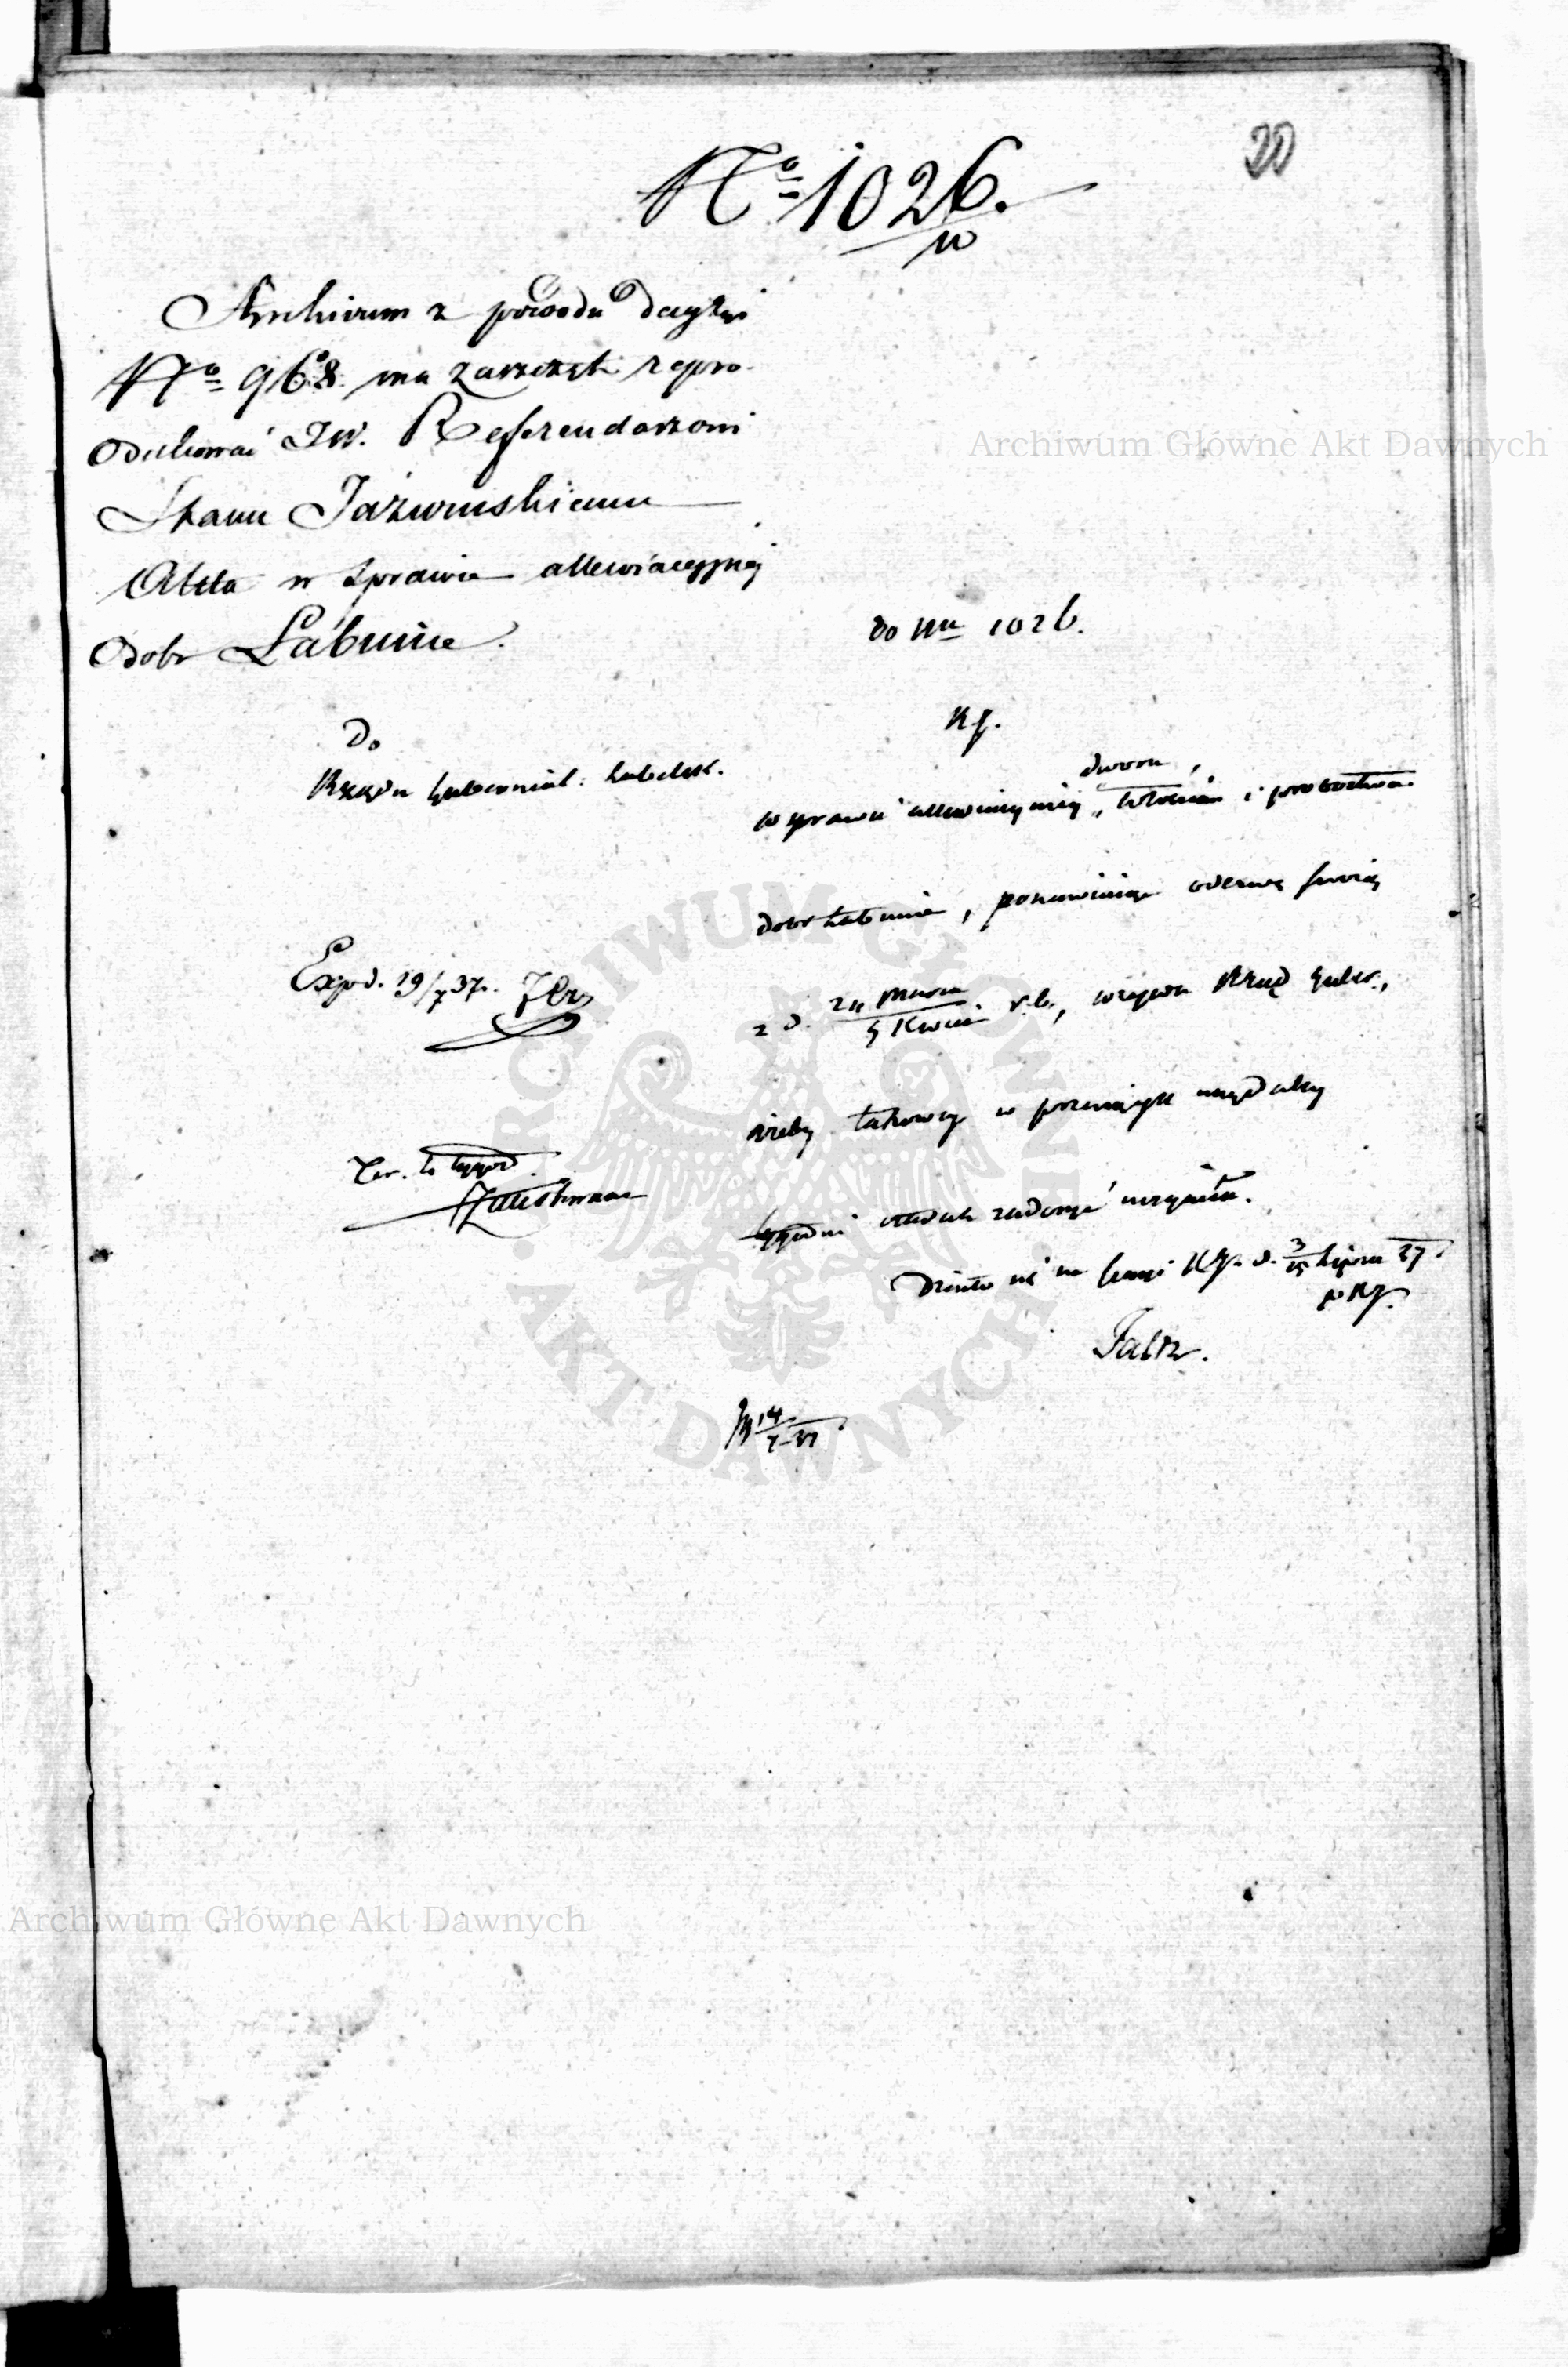 20
No 1026.
10
Archiwum z powodu decyzyi
No 968. ma zaraz repro-
dukować JW. Referendarzowi
Stanu Jaźwińskiemu
Akta w sprawie allewiacyjnej
Dobr Łabunie.
do Nru 1026.
Do
Rządu Gubernial: Lubelsk.
KJ.
dworu,
w sprawie allewiacyjnej, włościan i probostwa
dobr Łabunie, ponawiając odezwę swoią
z d. 24 Marca / 5 Kwiet r.b., wzywa Rząd Guber.,
ażeby takowey w przeciągu naydaley
tygodni zadosyć uczynił.
Expd. 19/7 37.
Działo się na Sessyi KJ. d. 3/15 Lipca 37.
14/7 37
Archiwum Główne Akt Dawnych
Archiwum Główne Akt Dawnych
ARCHIWUM GŁÓWNE AKT DAWNYCH